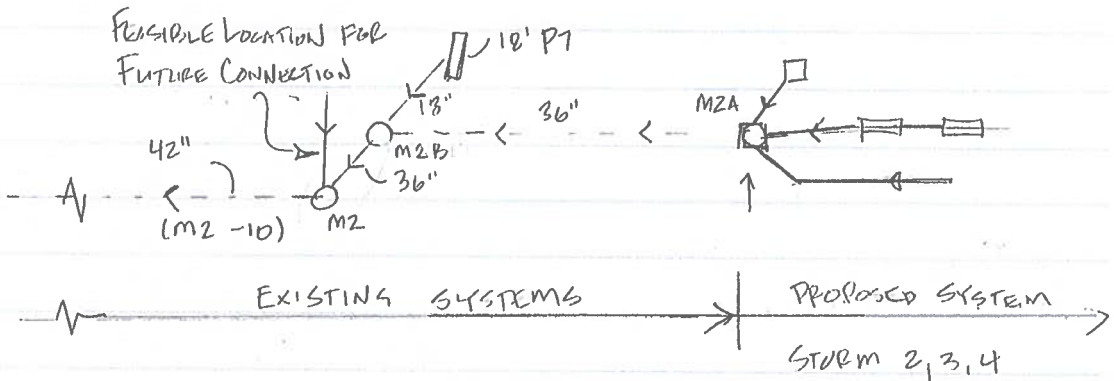 FEASIBLE LOCATION FOR
FUTURE CONNECTION
18' P7
18"
M2B
36"
M2A
42"
36"
(M2 -10)
M2
EXISTING SYSTEMS
PROPOSED SYSTEM
STORM 2,3,4